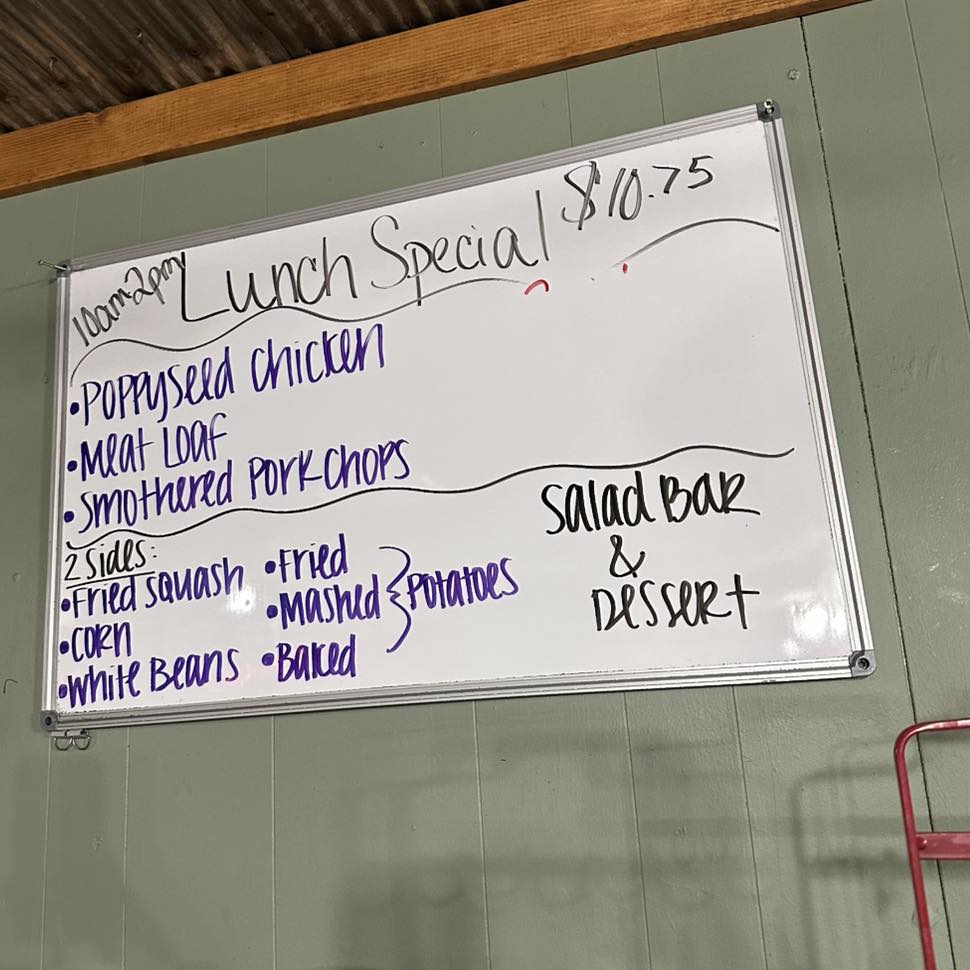 10am-2pm Lunch Special $10.75
• Poppyseed Chicken
• Meat Loaf
• Smothered Pork Chops
2 Sides:
• Fried Squash
• Corn
• White Beans
• Fried
• Mashed } Potatoes
• Baked
Salad Bar
&
Dessert